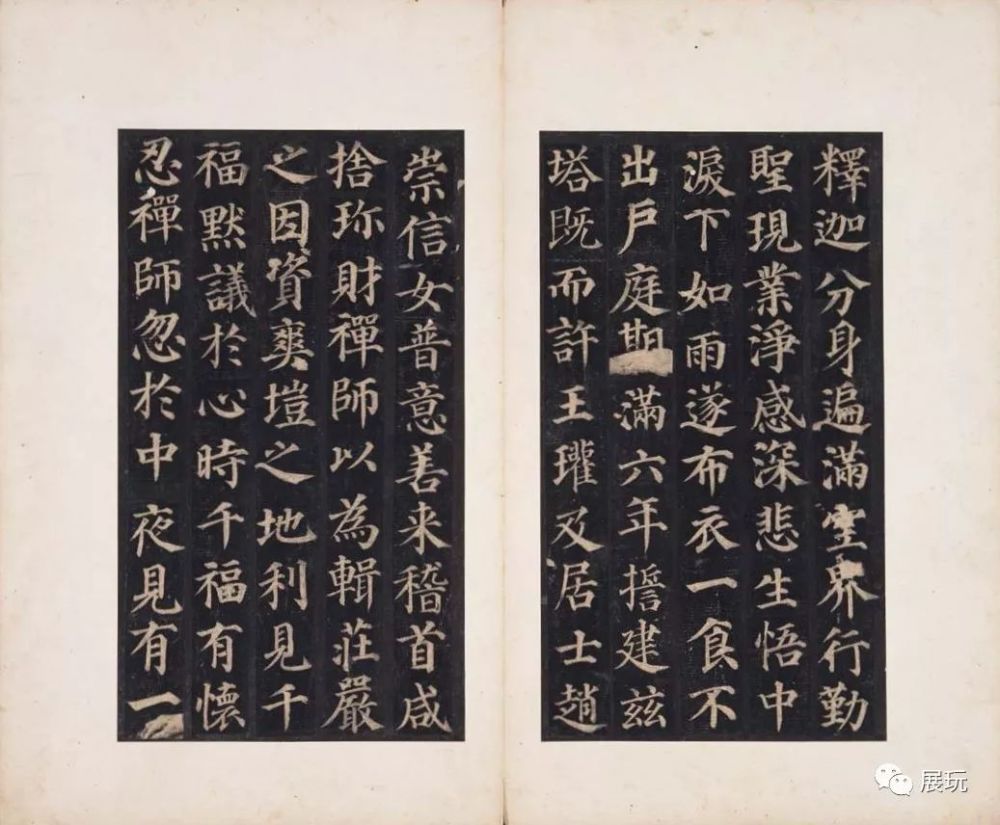 釋迦分身遍滿空界行勤
聖現業淨感深悲生悟中
淚下如雨遂布衣一食不
出戶庭期滿六年誓建茲
塔既而許王瓘及居士趙
崇信女普意善来稽首咸
捨珎財禪師以為輯莊嚴
之因資爽塏之地利見千
福默議於心時千福有懷
忍禪師忽於中夜見有一
展玩